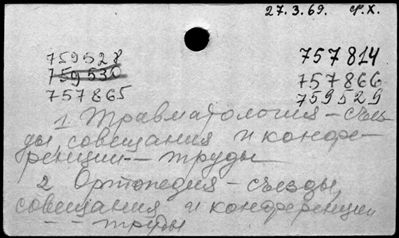 27.3.69. Ф.Х.
759528 757814
759530 757866
757865 759529
1. Травматология - съез-
ды, совещания и конфе-
ренции -- труды
2. Ортопедия - съезды,
совещания и конференции
-- труды